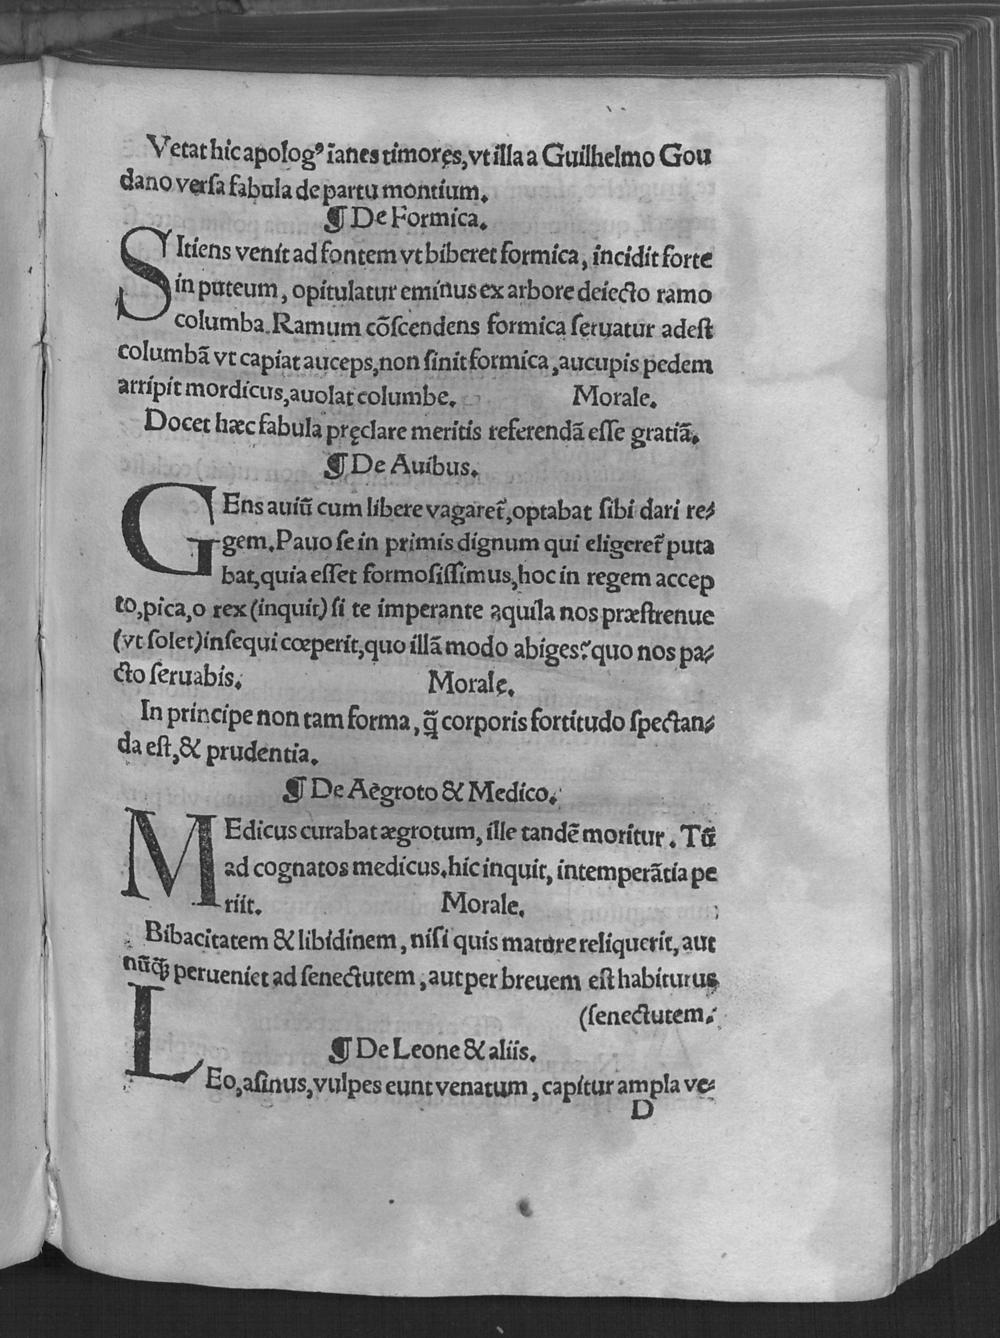 Vetat hic apologꝰ īanes timoręs, vt illa a Guilhelmo Gou
dano versa fabula de partu montium.
¶ De Formica.
SItiens venit ad fontem vt biberet formica, incidit forte
in puteum, opitulatur eminus ex arbore deiecto ramo
columba. Ramum cōſcendens formica ſeruatur adeſt
columbā vt capiat auceps, non ſinit formica, aucupis pedem
arripit mordicus, auolat columbe. Morale.
Docet hæc fabula pręclare meritis referendā eſſe gratiā.
¶ De Auibus.
GEns auiū cum libere vagaret᷑, optabat ſibi dari re⸗
gem. Pauo ſe in primis dignum qui eligeret᷑ puta
bat, quia eſſet formoſiſſimus, hoc in regem accep
to, pica, o rex (inquit) ſi te imperante aquila nos præſtrenue
(vt ſolet) inſequi cœperit, quo illā modo abiges? quo nos pa⸗
cto ſeruabis. Moralę.
In principe non tam forma, q̄̃ corporis fortitudo ſpectan⸗
da eſt, & prudentia.
¶ De Aegroto & Medico.
MEdicus curabat ægrotum, ille tandē moritur. Tū
ad cognatos medicus. hic inquit, intemperātia pe
riit. Morale.
Bibacitatem & libidinem, niſi quis mature reliquerit, aut
nūꝗ̃ perueniet ad ſenectutem, aut per breuem eſt habiturus
(ſenectutem.
¶ De Leone & aliis.
LEo, aſinus, vulpes eunt venatum, capitur ampla ve⸗
D